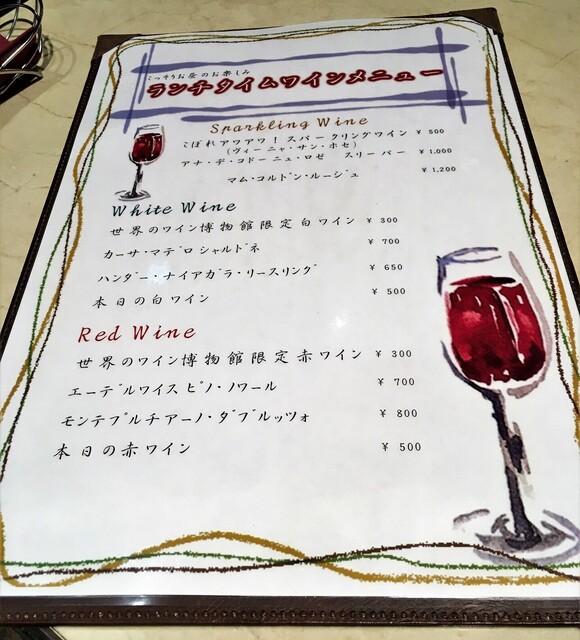 こっそりお昼のお楽しみ
ランチタイムワインメニュー
Sparkling Wine
こぼれアワアワ！スパークリングワイン ¥ 500
(ヴィーニャ・サン・ホセ)
アナ・デ・コドーニュ・ロゼ スリーバー ¥ 1,000
マム・コルドン・ルージュ ¥ 1,200
White Wine
世界のワイン博物館限定白ワイン ¥ 300
カーサ・マデロ シャルドネ ¥ 700
ハンダー・ナイアガラ・リースリング ¥ 650
本日の白ワイン ¥ 500
Red Wine
世界のワイン博物館限定赤ワイン ¥ 300
エーデルワイス ピノ・ノワール ¥ 700
モンテプルチアーノ・ダブルッツォ ¥ 800
本日の赤ワイン ¥ 500